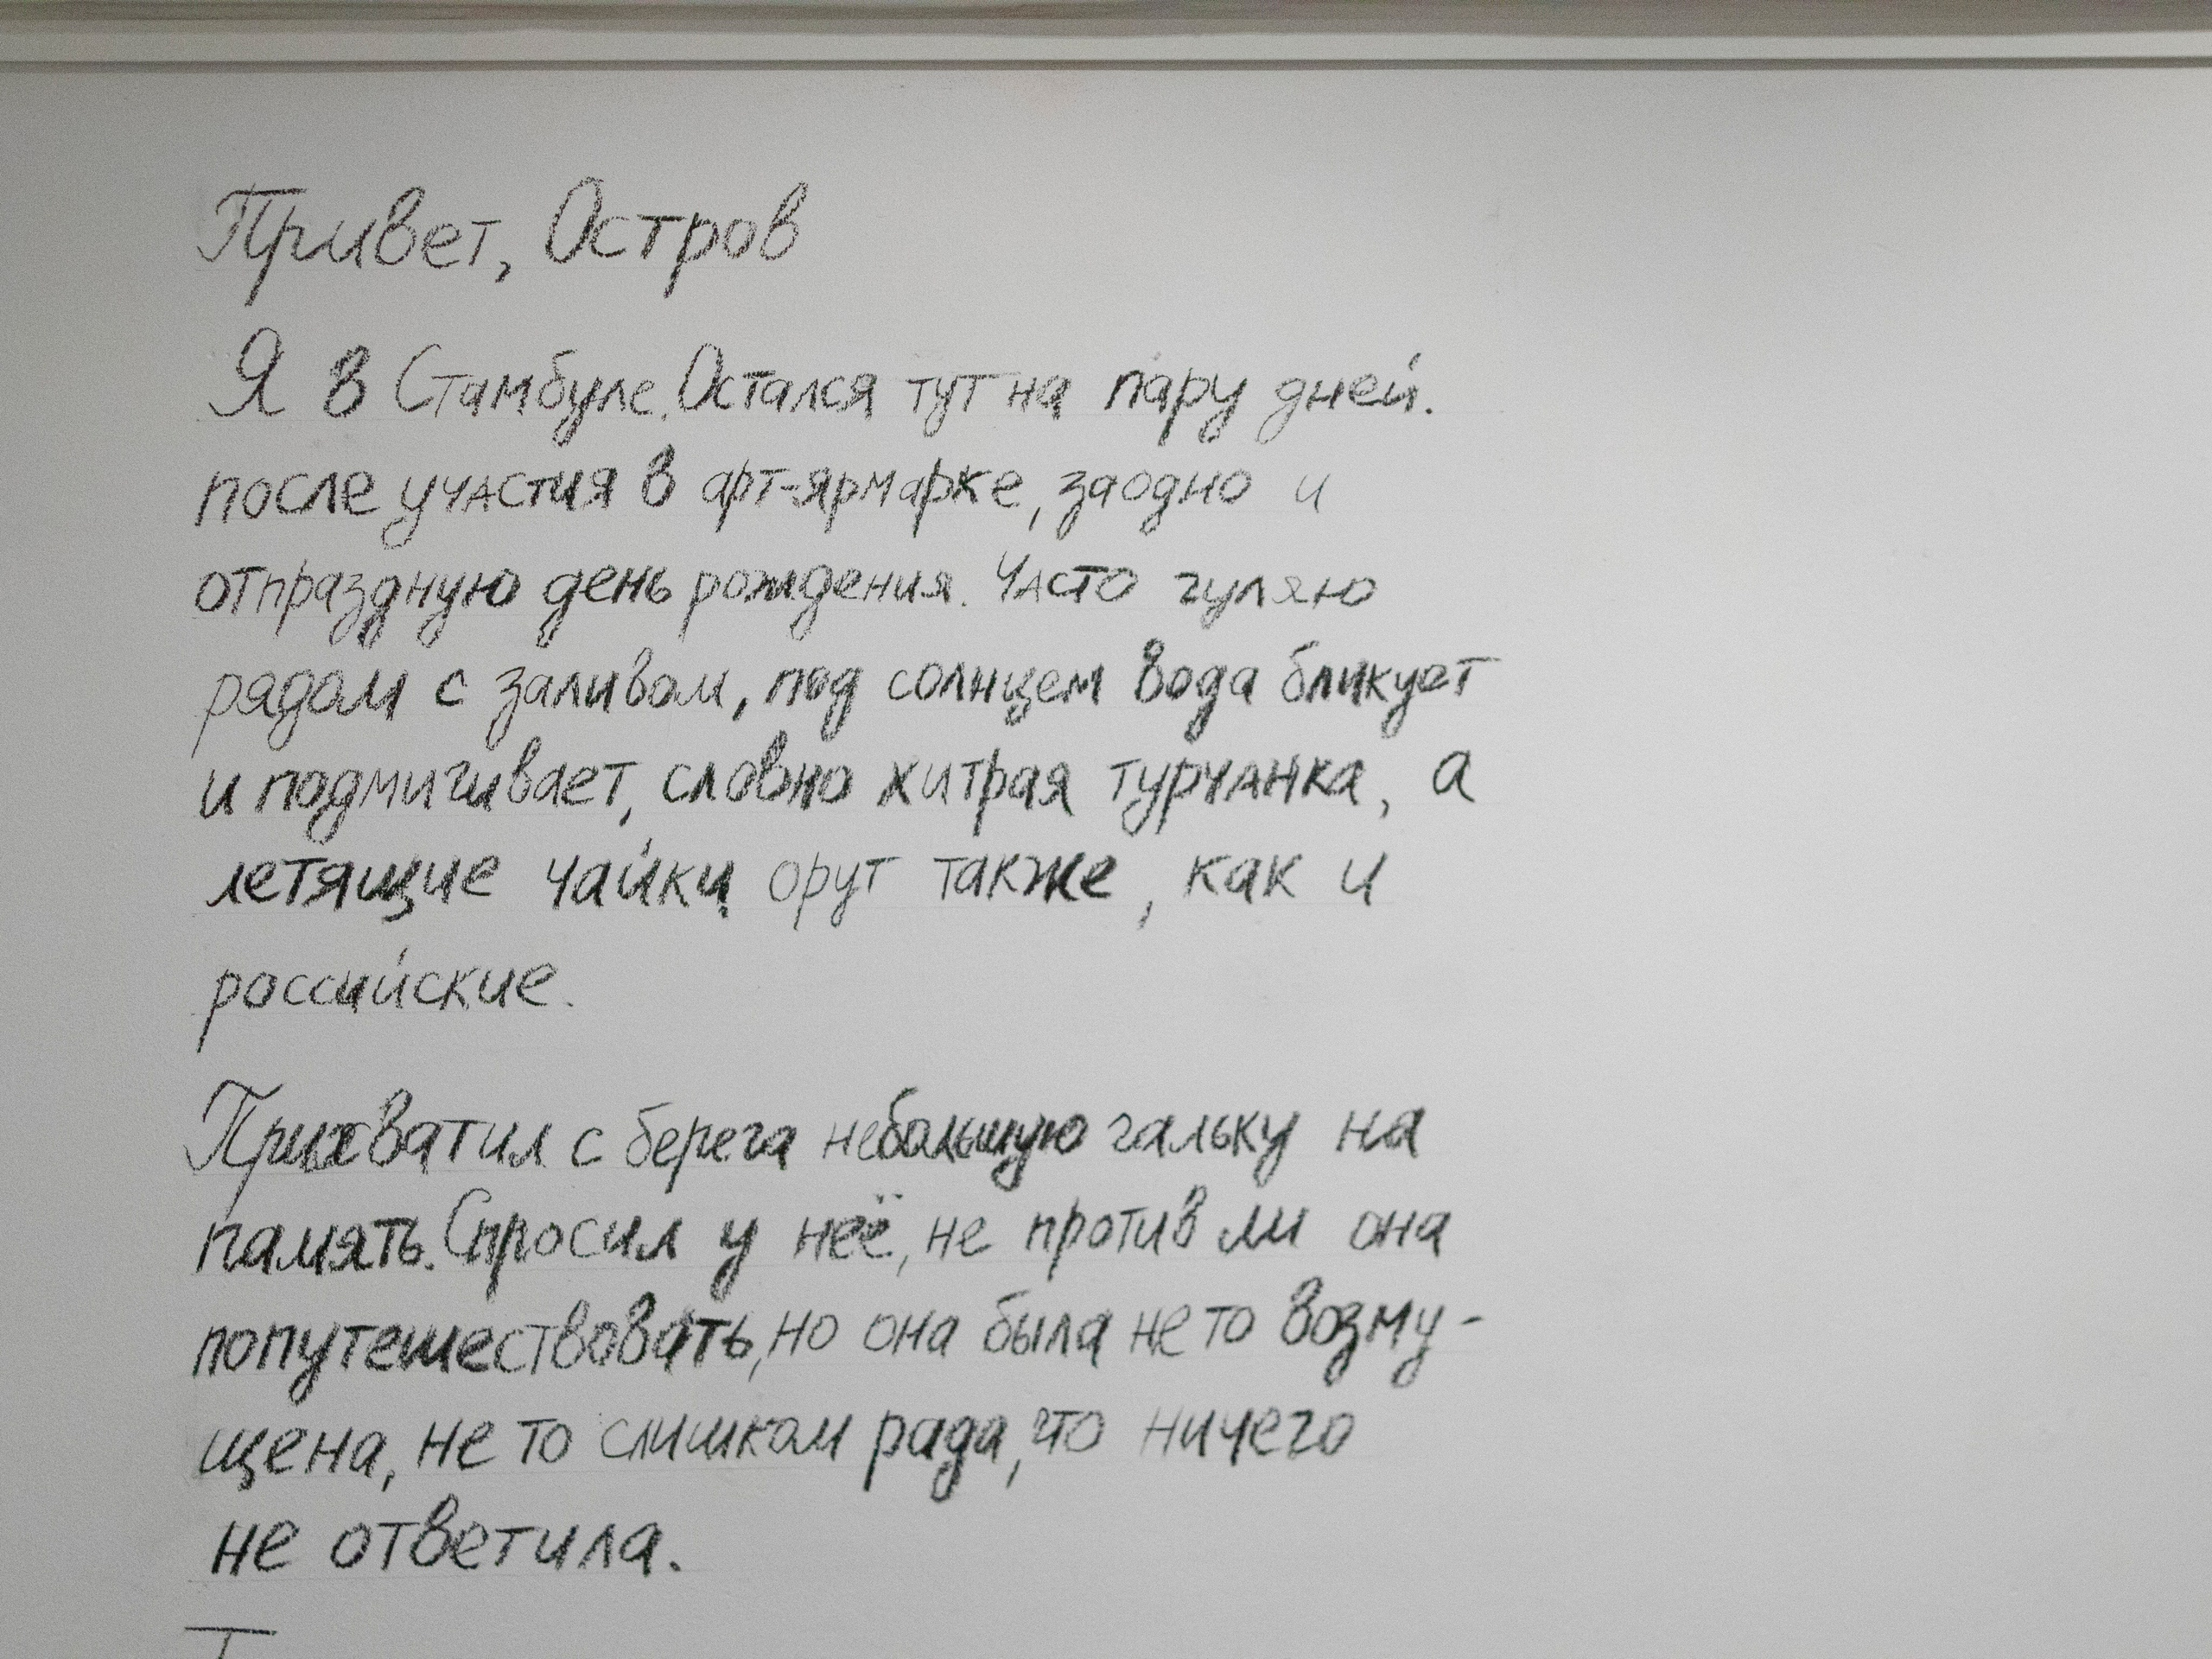 Привет, Остров
Я в Стамбуле. Остался тут на пару дней.
после участия в арт-ярмарке, заодно и
отпраздную день рождения. Часто гуляю
рядом с заливом, под солнцем вода бликует
и подмигивает, словно хитрая турчанка, а
летящие чайки орут также, как и
российские.
Прихватил с берега небольшую гальку на
память. Спросил у неё, не против ли она
попутешествовать, но она была не то возму-
щена, не то слишком рада, что ничего
не ответила.